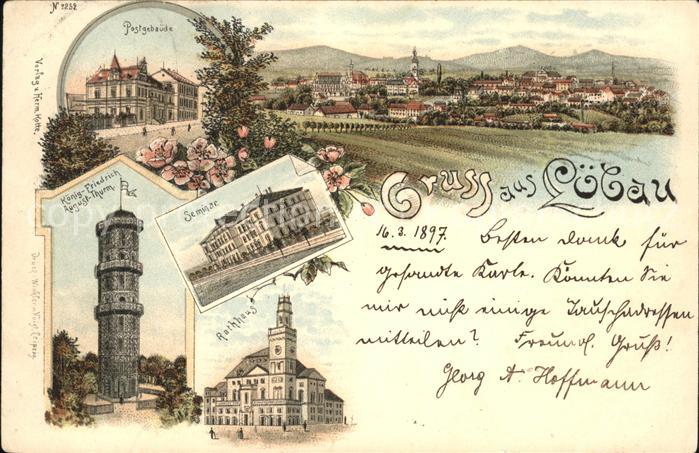 N 2252
Postgebäude
Verlag v. Herm. Hotte.
König-Friedrich
August-Thurm
Seminar
Gruss aus Löbau
16.3.1897. Besten Dank für
gesandte Karte. Könnten Sie
mir nicht einige Tauschadressen
mitteilen? Freundl. Gruß!
Georg A. Hoffmann
Rathhaus
Leipzig